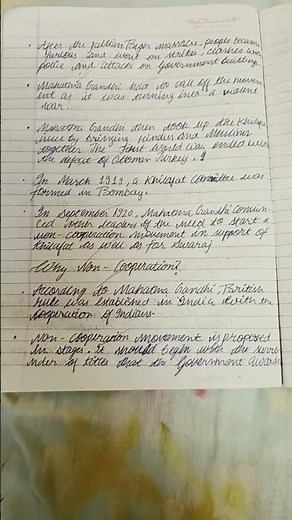 • After the Jallian Bagh Massacre, people became
furious and went on strikes, clashes with
police and attacks on Government building.
• Mahatma Gandhi had to call off the movem
ent as it was turning into a violent
war.
• Mahatma Gandhi then took up the Khilafat
issue by bringing hindus and Muslims
together. The First World war ended with
the defeat of Ottoman Turkey.
• In March 1919, a Khilafat committee was
formed in Bombay.
• In September 1920, Mahatma Gandhi convin-
ced other leaders of the need to start a
non-cooperation movement in support of
Khilafat as well as for Swaraj
Why Non-Cooperation?
• According to Mahatma Gandhi British
rule was established in India with the
cooperation of Indians.
• Non-cooperation movement is proposed
in stages. It should begin with the surre
nder of titles that the Government awarded